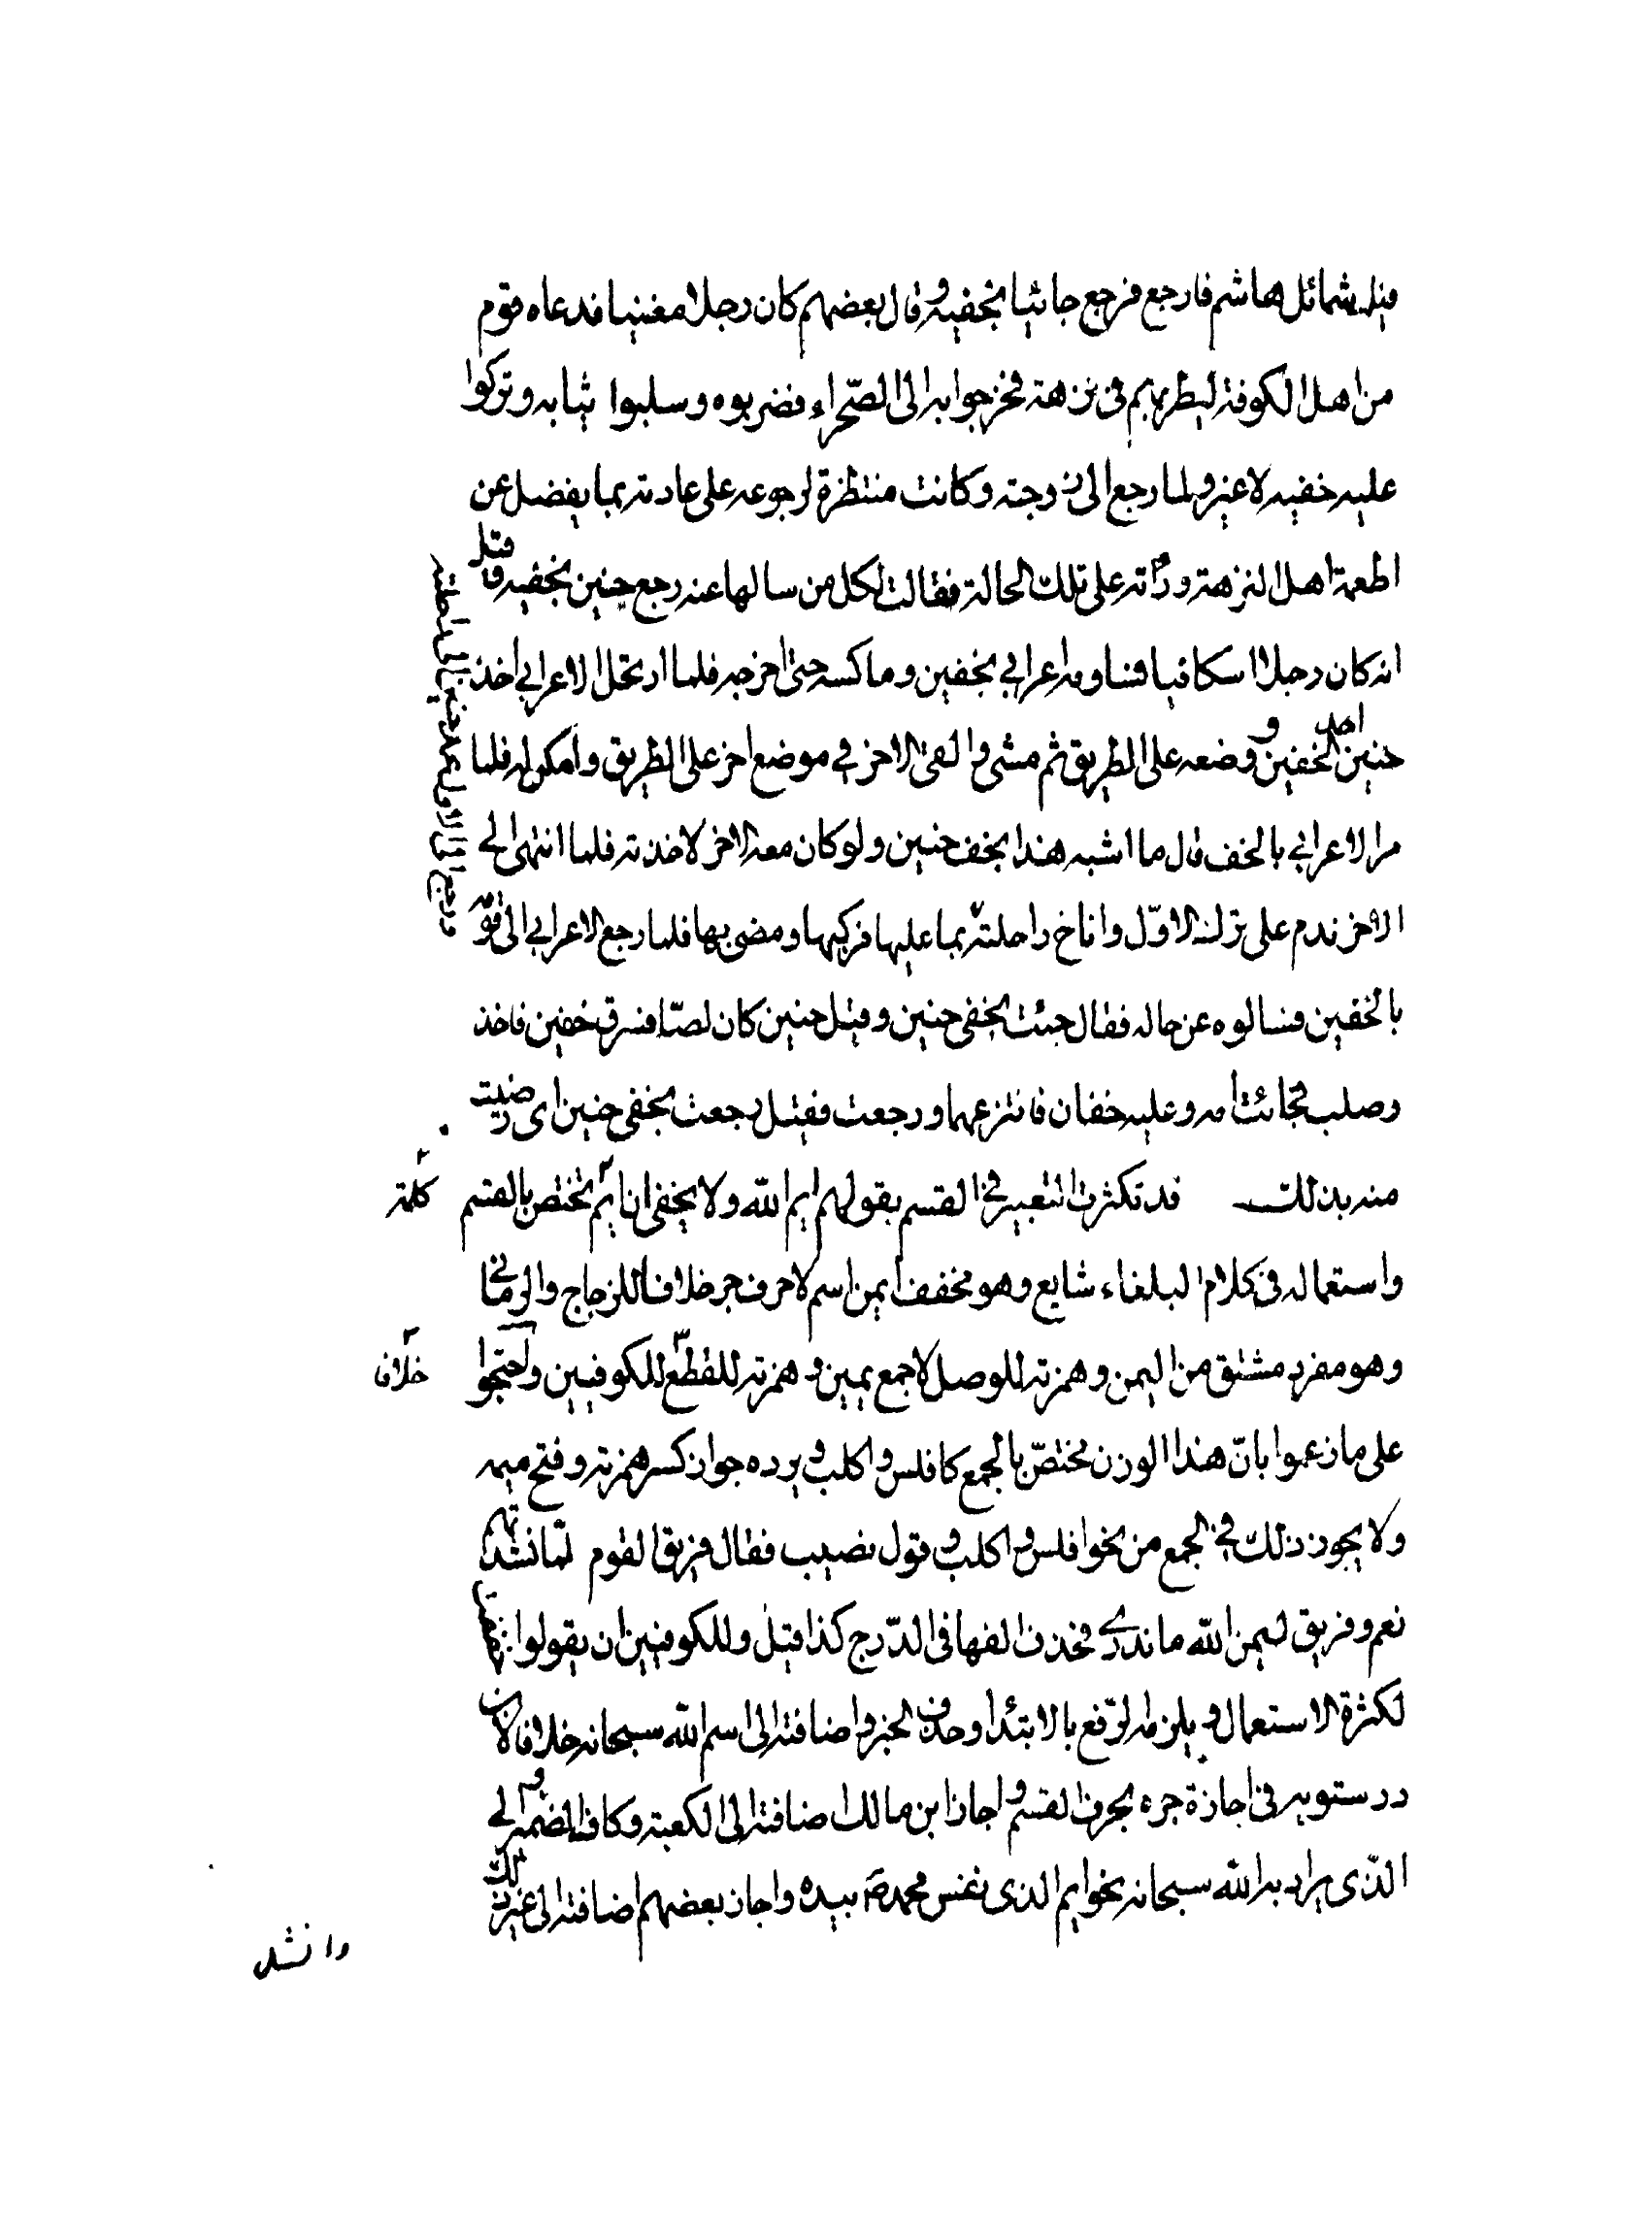 فيك شمائل هاشم فارجع فرجع جائيا بخفيه و قال بعضهم كان رجلا مغنيا فدعاه قوم
من اهل الكوفة ليطربهم في نزهة فخرجوا به الى الصّحراء فضربوه وسلبوا ثيابه وتركوا
عليه خفيه لا غير و لما رجع الى زوجته وكانت منتظرة لرجوعه على عادته بما يفضل عن
اطعمة اهل النزهة وراته على تلك الحالة فقالت لكل من سالها عنه رجع حنين بخفيه وقيل
انه كان رجلا اسكافيا فساومه اعرابي بخفين وماكسه حتى احرجه فلما ارتحل الاعرابي اخذ
حنين احد الخفين و وضعه على الطريق ثم مشى و القى الاخر في موضع اخر على الطريق و له فلما
مر الاعرابي بالخف قال ما اشبه هذا بخف حنين ولو كان معه الاخر لاخذته فلما انتهى الى
الاخر ندم على ترك الاوّل واناخ راحلته بما عليها فركبها ومضى بها فلما رجع الاعرابي الى قومه
ورجع الى الاول
بالخفين فسالوه عن حاله فقال جئت بخفي حنين وقيل حنين كان لصّا فسرق خفين فاخذ
وصلب فجائت امه وعليه خفان فانتزعهما ورجعت فقيل رجعت بخفي حنين اى رضيت
منه بذلك قد تكثرت التعبير في القسم بقولهم ايم الله ولا يخفى ان ايم تختص بالقسم
كلمة
واستعماله في كلام البلغاء شايع وهو مخفف ايمن اسم لا حرف جر خلافا للزجاج والرماني
وهو مفرد مشتق من اليمن وهمزته للوصل لا جمع يمين و همزته للقطع للكوفيين واحتجوا
خلافا
على ما زعموا بانّ هذا الوزن مختصّ بالجمع كافلس و اكلب و يرده جواز كسر همزته وفتح ميمه
ولا يجوز ذلك في الجمع من نحو افلس و اكلب و قول نصيب فقال فريق القوم لمّا نشدتهم
نعم وفريق ليمن الله ما ندري فحذف الفها في الدّرج كذا قيل وللكوفيين ان يقولوا
لكثرة الاستعمال و يلزمه الرّفع بالابتداء و حذف الخبر و اضافته الى اسم الله سبحانه خلافا لابن
درستويه في اجازة جره بحرف القسم و اجاز ابن مالك اضافته الى الكعبة و كاف الضمير و الى
الذي يراد به الله سبحانه نحو ايم الذى نفس محمد ص بيده واجاز بعضهم اضافته الى غير ذلك
وانشد